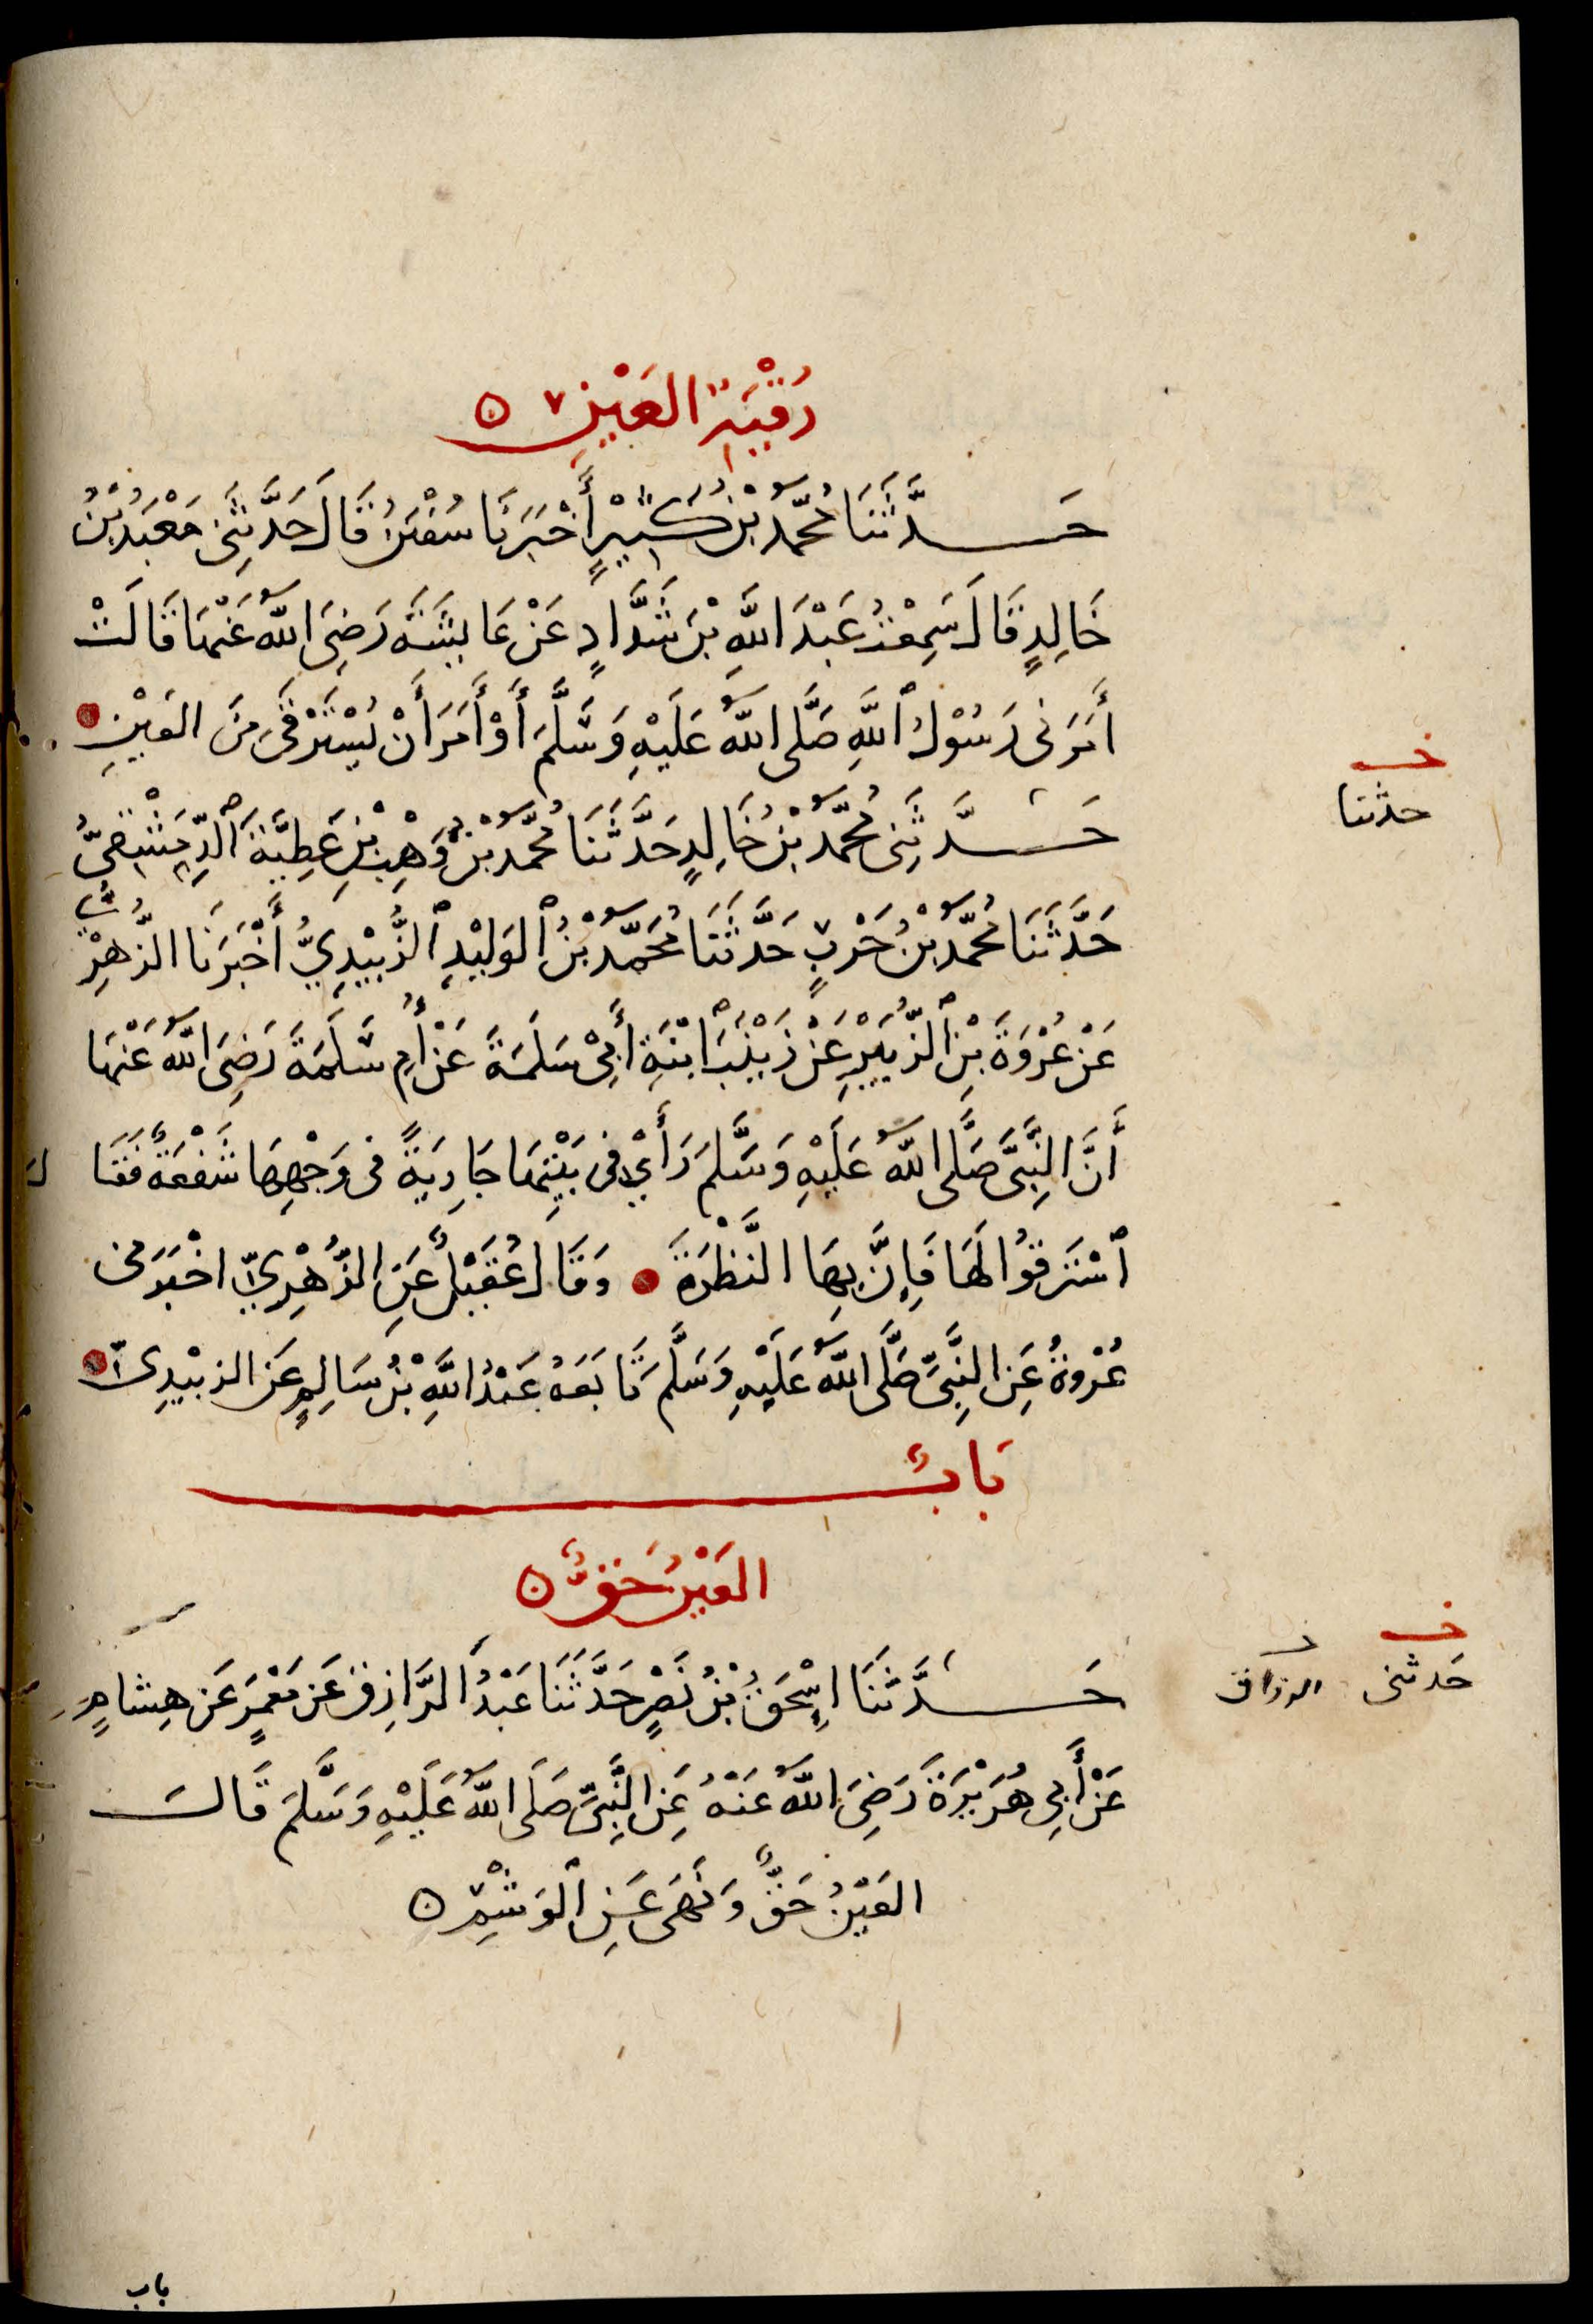 رُقْيَةِ العَيْنِ ه
حَدَّثَنَا مُحَمَّدُ بْنُ كَثِيْرٍ أَخْبَرَنَا سُفْيٰنُ قَالَ حَدَّثَنِى مَعْبَدُ بْنُ
خَالِدٍ قَالَ سَمِعْتُ عَبْدَ اللَّهِ بْنَ شَدَّادٍ عَنْ عَايِشَةَ رَضِىَ اللَّهُ عَنْهَا قَالَتْ
أَمَرَنِى رَسُوْلُ ٱللَّهِ صَلَّى اللَّهُ عَلَيْهِ وَسَلَّمَ أَوْ أَمَرَ أَنْ يُسْتَرْقَى مِنَ العَيْنِ
حدثنا
حَدَّثَنِى مُحَمَّدُ بْنُ خَالِدٍ حَدَّثَنَا مُحَمَّدُ بْنُ وَهْبِ بْنِ عَطِيَّةَ ٱلدِّمَشْقِىُّ
حَدَّثَنَا مُحَمَّدُ بْنُ حَرْبٍ حَدَّثَنَا مُحَمَّدُ بْنُ ٱلوَلِيْدِ ٱلزُّبَيْدِيُّ أَخْبَرَنَا الزُّهْرِيُّ
عَنْ عُرْوَةَ بْنِ ٱلزُّبَيْرِ عَنْ زَيْنَبَ ٱبْنَةِ أَبِىْ سَلَمَةَ عَنْ أُمِ سَلَمَةَ رَضِىَ اللَّهُ عَنْهَا
أَنَّ النَّبِىَّ صَلَّى اللَّهُ عَلَيْهِ وَسَلَّمَ رَأَيْ فِى بَيْتِهَا جَارِيَةً فى وَجْهِهَا سَفْعَةٌ فَقَالَ
ٱسْتَرقُوْا لَهَا فَإِنَّ بِهَا النَّظْرَةَ وَقَالَ عُقَيْلٌ عَنِ الزُّهْرِيِّ اخْبَرَنى
عُرْوةُ عَنِ النَّبِىِّ صَلَّى اللَّهُ عَلَيْهِ وَسَلَّمَ تَابَعَهُ عَبْدُ اللَّهِ بْنُ سَالِمٍ عَن الزبَيْدِىِّ
بَابٌ
العَيْنُ حَقٌّ ه
حَدثنى الرزاق
حَدَّثَنَا اِسْحَقُ بْنُ نَصْرٍ حَدَّثَنَا عَبْدُ الرَّازِقِ عَنْ مَعْمَرٍ عَنْ هِشامٍ
عَنْ أَبِى هُرَيْرَةَ رَضِىَ اللَّهُ عَنْهُ عَنِ النَّبِىِّ صَلَى اللَّهُ عَلَيْهِ وَسَلَّمَ قَالَ
العَيْنُ حَقٌّ وَنَهَى عَنِ ٱلوَشْمِ ه
باب